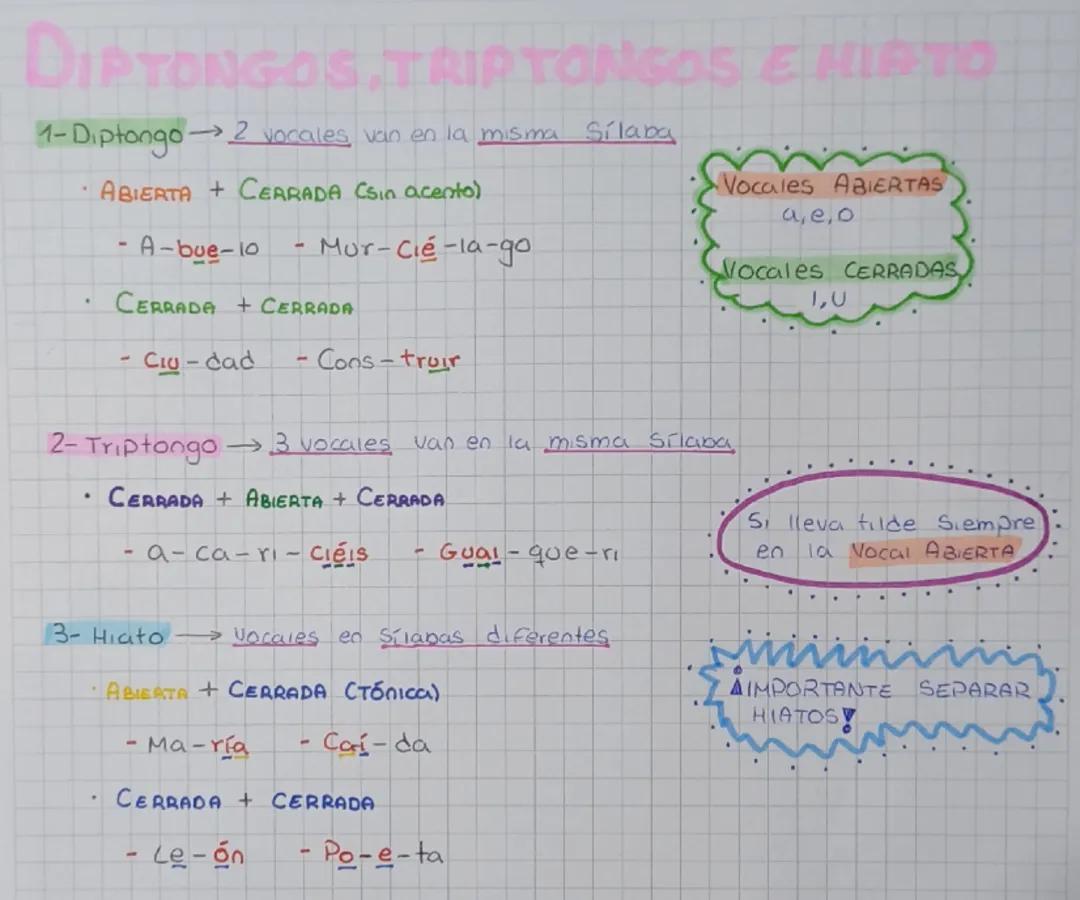 DIPTONGOS, TRIPTONGOS E HIATO
1- Diptongo → 2 vocales van en la misma Sílaba
· ABIERTA + CERRADA (sin acento)
- A-bue-lo - Mur-Cié-la-go
· CERRADA + CERRADA
- Ciu-dad - Cons-truir
Vocales ABIERTAS
a, e, o
Vocales CERRADAS
I, U
2- Triptongo → 3 vocales van en la misma Sílaba
· CERRADA + ABIERTA + CERRADA
- a-ca-ri-ciéis - Guai-que-ri
Si lleva tilde Siempre
en la Vocal ABIERTA
3- Hiato → Vocales en Sílabas diferentes
· ABIERTA + CERRADA (TÓNICA)
- Ma-ría - Caí-da
· CERRADA + CERRADA
- Le-ón - Po-e-ta
¡IMPORTANTE SEPARAR
HIATOS!